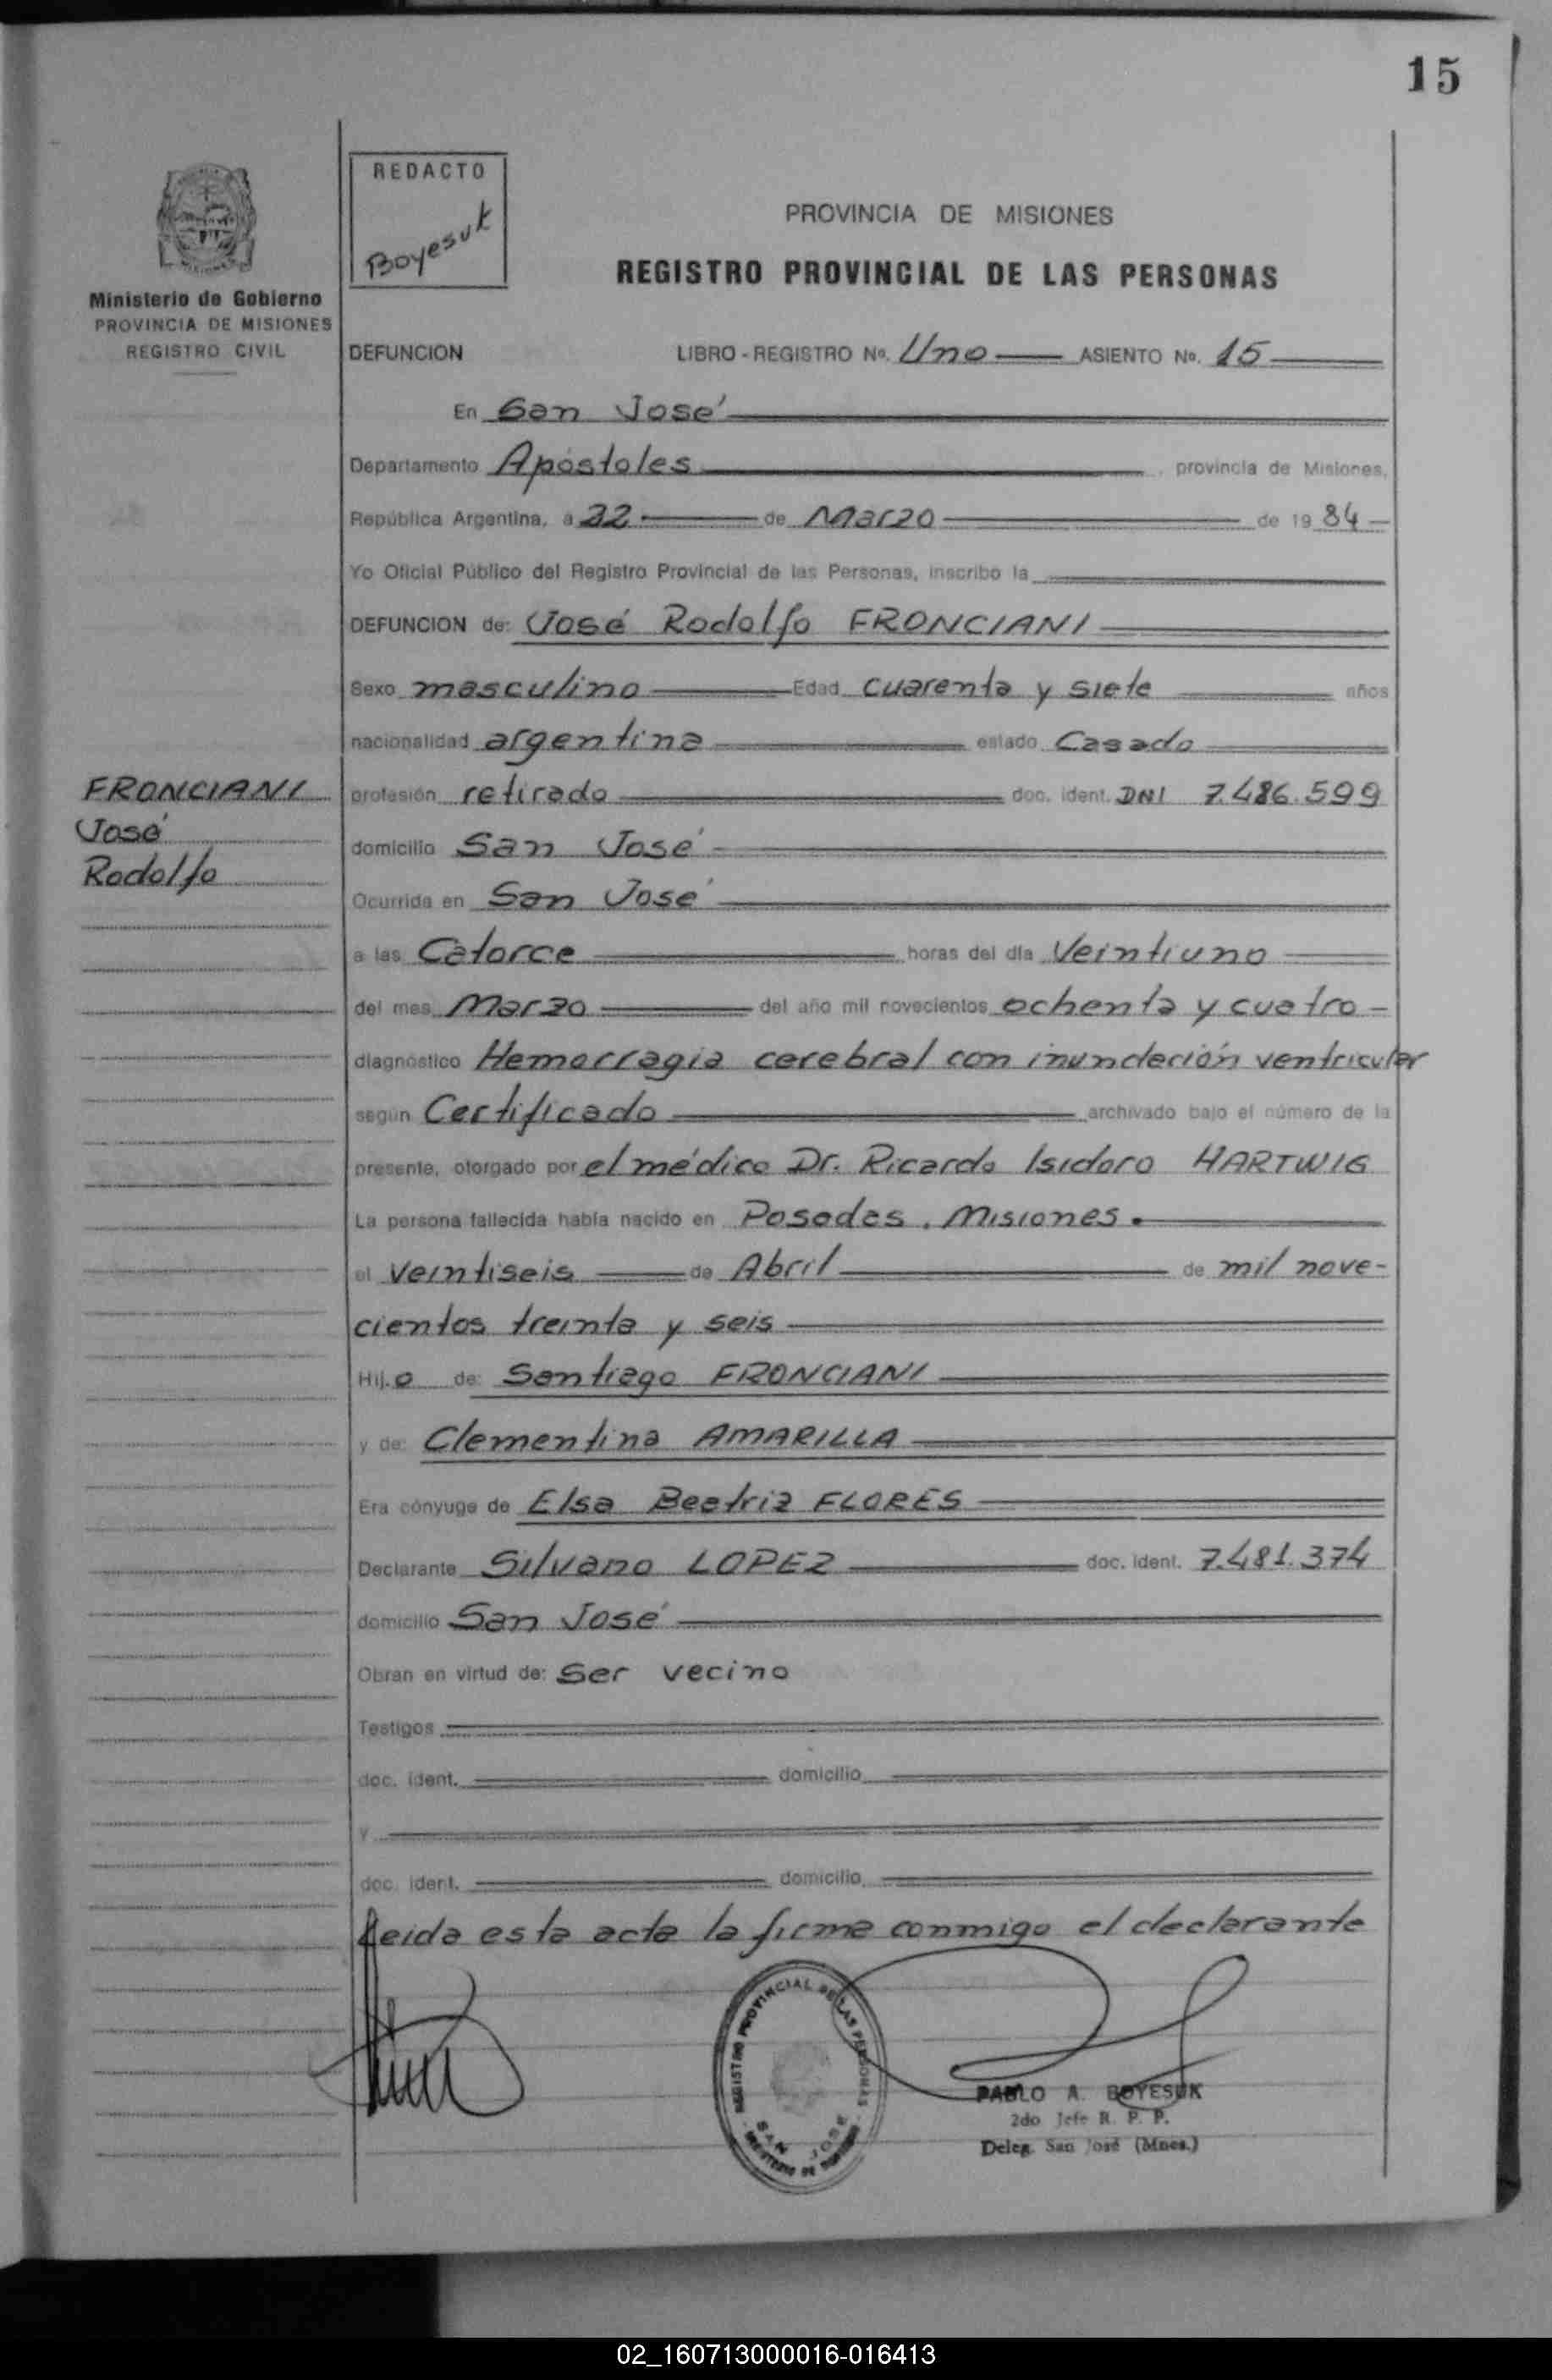 15
REDACTO
Boyesuk
PROVINCIA DE MISIONES
REGISTRO PROVINCIAL DE LAS PERSONAS
Ministerio de Gobierno
PROVINCIA DE MISIONES
REGISTRO CIVIL
DEFUNCION LIBRO - REGISTRO No. Uno ASIENTO No. 15
En San José
Departamento Apóstoles, provincia de Misiones,
República Argentina, a 22 de Marzo de 1984
Yo Oficial Público del Registro Provincial de las Personas, inscribo la
DEFUNCION de: José Rodolfo FRONCIANI
Sexo masculino Edad cuarenta y siete años
nacionalidad argentina estado Casado
FRONCIANI
José
Rodolfo
profesión retirado doc. ident. DNI 7.486.599
domicilio San José
Ocurrida en San José
a las Catorce horas del día Veintiuno
del mes Marzo del año mil novecientos ochenta y cuatro
diagnóstico Hemorragia cerebral con inundación ventricular
según Certificado archivado bajo el número de la
presente, otorgado por el médico Dr. Ricardo Isidoro HARTWIG
La persona fallecida había nacido en Posadas. Misiones.
el veintiseis de Abril de mil nove-
cientos treinta y seis
Hij.o de: Santiago FRONCIANI
y de: Clementina AMARILLA
Era cónyuge de Elsa Beatriz FLORES
Declarante Silvano LOPEZ doc. ident. 7.481.374
domicilio San José
Obran en virtud de: Ser vecino
Testigos
doc. ident. domicilio
y
doc. ident. domicilio
Leida esta acta la firma conmigo el declarante
REGISTRO PROVINCIAL DE LAS PERSONAS
SAN JOSE
PABLO A. BOYESUK
2do Jefe R. P. P.
Deleg. San José (Mnes.)
02_160713000016-016413